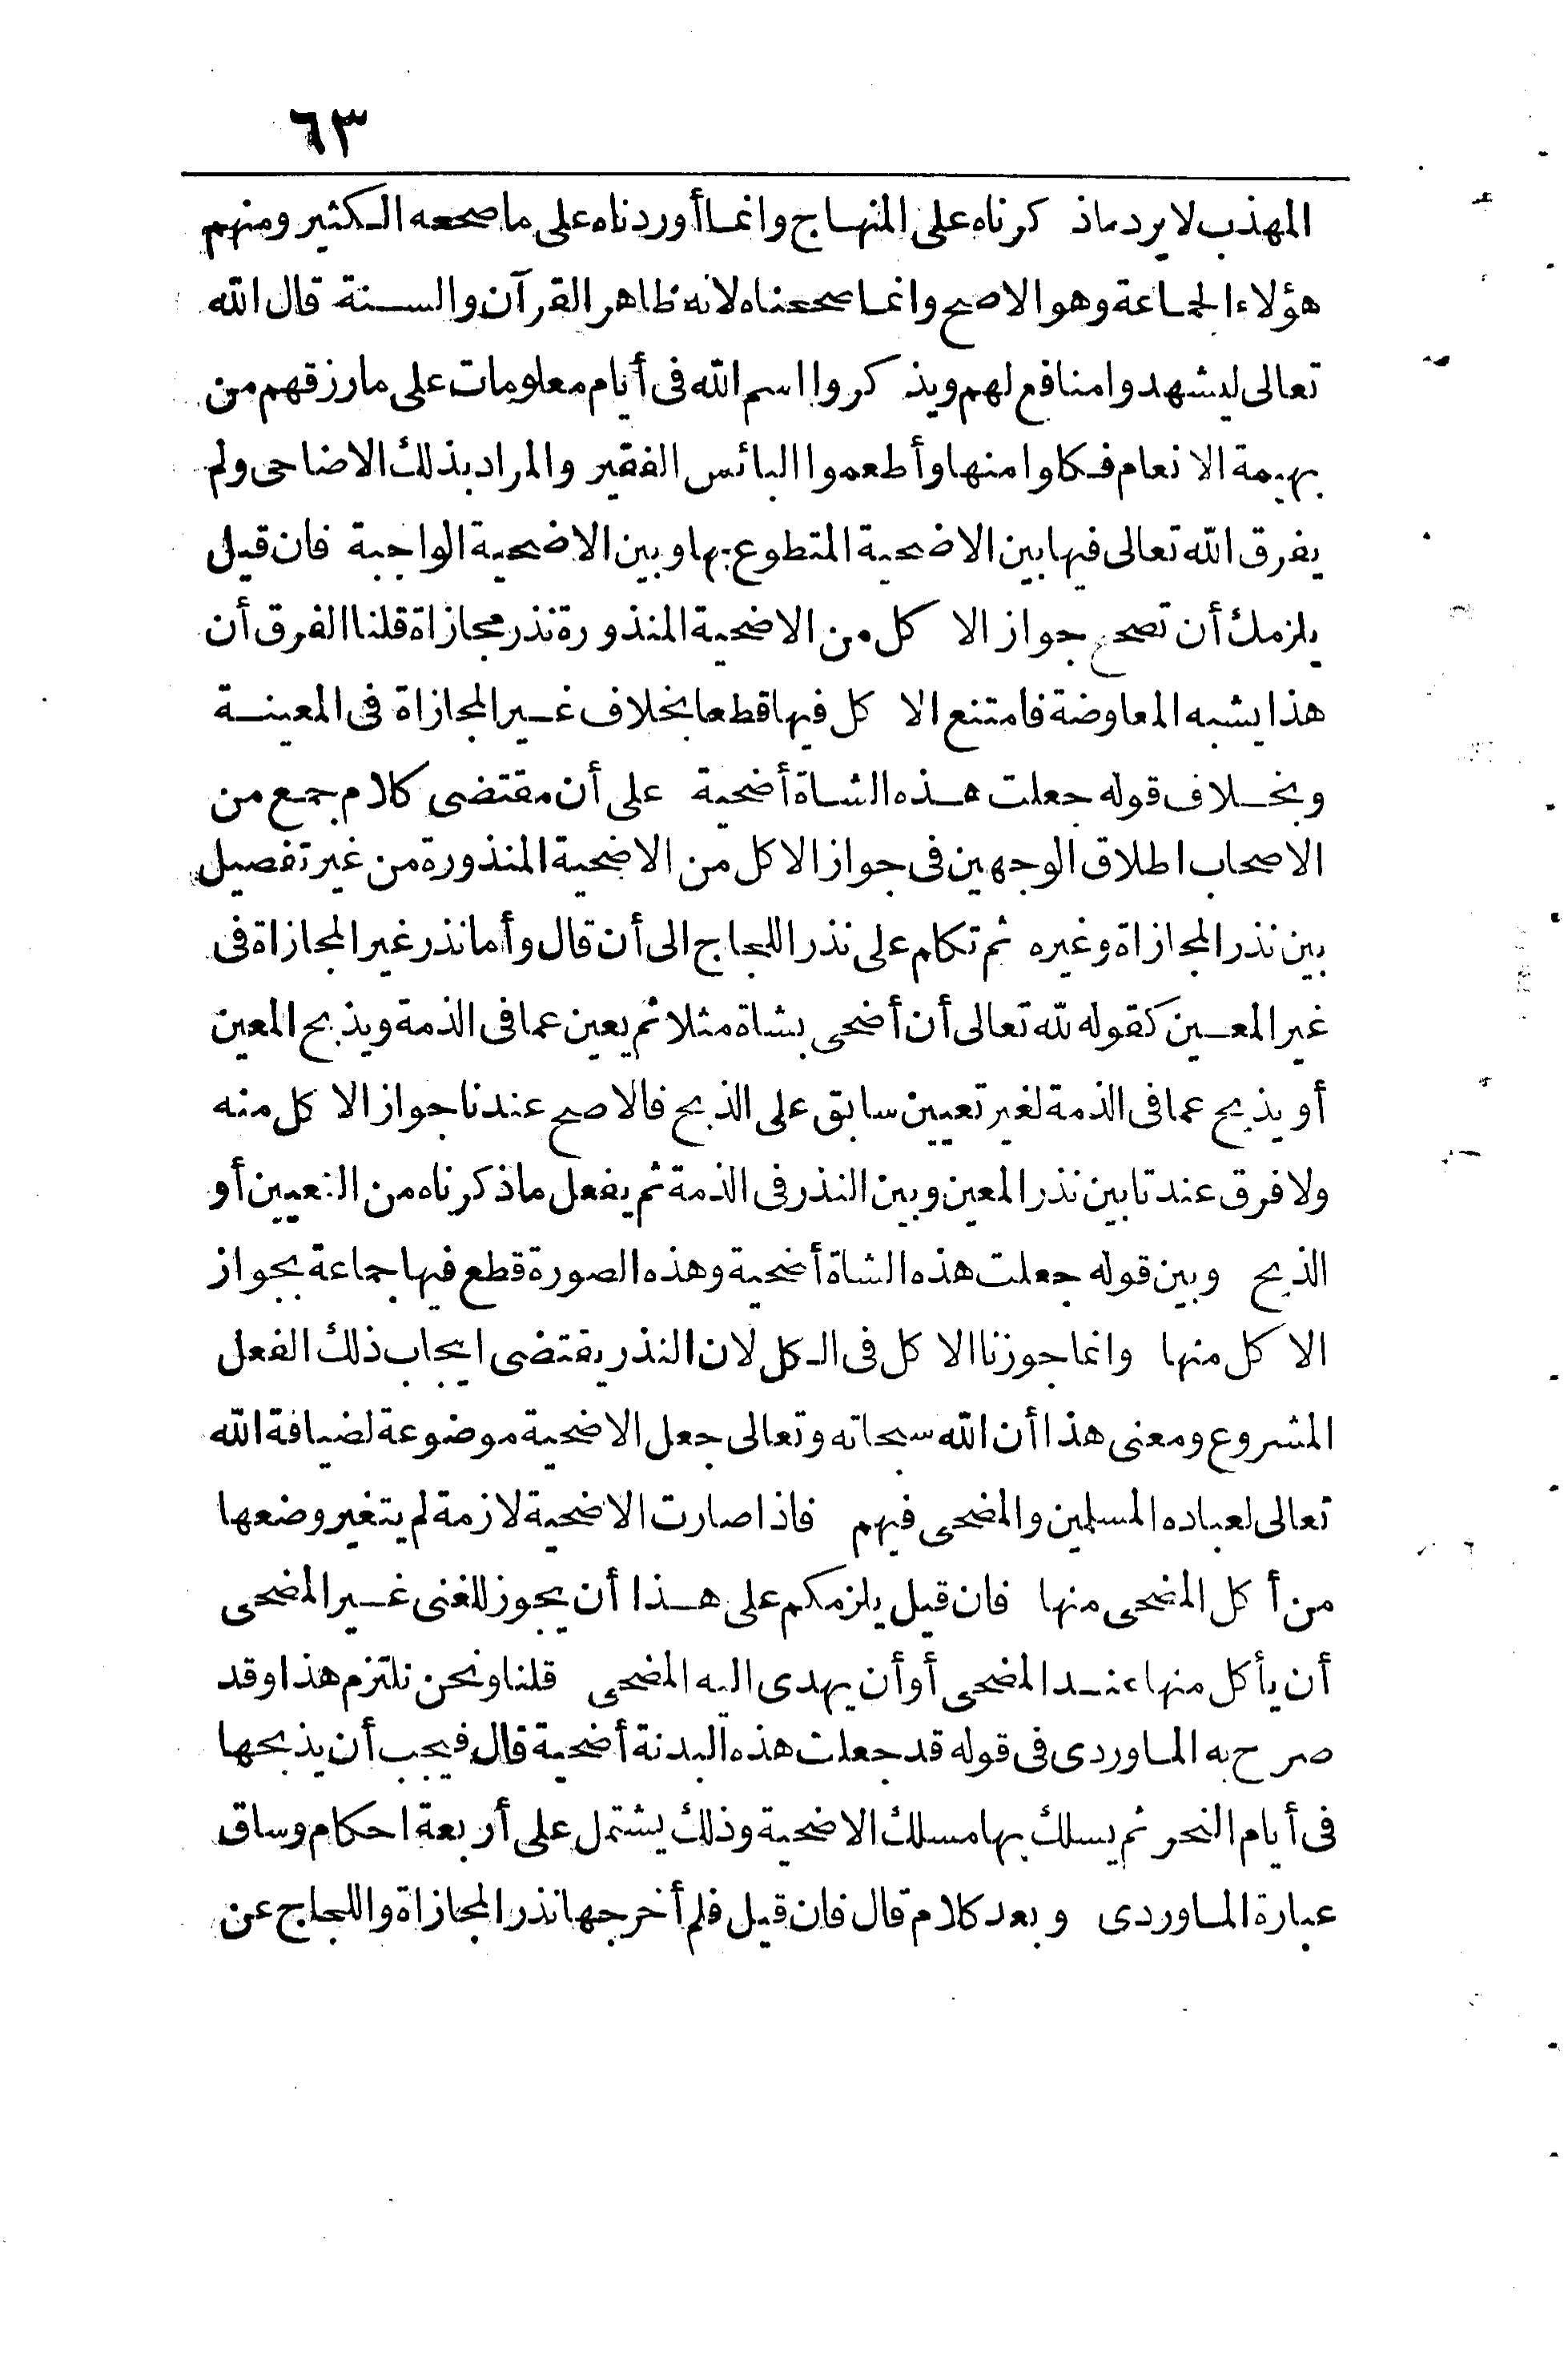 ٦٣
المهذب لا يرد ماذكرناه على المنهاج وانما أوردناه على ما صححه الكثير ومنهم
هؤلاء الجماعة وهو الاصح وانما صححناه لانه ظاهر القرآن والسنة قال الله
تعالى ليشهدوا منافع لهم ويذكروا اسم الله فى أيام معلومات على مارزقهم من
بهيمة الانعام فكاوا منها وأطعموا البائس الفقير والمراد بذلك الاضاحى ولم
يفرق الله تعالى فيها بين الاضحية المتطوع بها وبين الاضحية الواجبة فان قيل
يلزمك أن تصحح جواز الاكل من الاضحية المنذورة نذر مجازاة قلنا الفرق أن
هذا يشبه المعاوضة فامتنع الاكل فيها قطعا بخلاف غير المجازاة فى المعينة
وبخلاف قوله جعلت هذه الشاة أضحية على أن مقتضى كلام جمع من
الاصحاب اطلاق الوجهين فى جواز الاكل من الاضحية المنذورة من غير تفصيل
بين نذر المجازاة وغيره ثم تكام على نذر اللجاج الى أن قال وأما نذر غير المجازاة فى
غير المعين كقوله لله تعالى أن أضحى بشاة مثلا ثم يعين عما فى الذمة ويذبح المعين
أو يذبح عما فى الذمة لغير تعيين سابق على الذبح فالاصح عندنا جواز الاكل منه
ولا فرق عندنا بين نذر المعين وبين النذر فى الذمة ثم يفعل ماذكرناه من التعيين أو
الذبح وبين قوله جعلت هذه الشاة أضحية وهذه الصورة قطع فيها جماعة بجواز
الاكل منها وانما جوزنا الاكل فى الكل لان النذر يقتضى ايجاب ذلك الفعل
المشروع ومعنى هذا أن الله سبحانه وتعالى جعل الاضحية موضوعة لضيافة الله
تعالى لعباده المسلمين والمضحى فيهم فاذا صارت الاضحية لازمة لم يتغير وضعها
من أكل المضحى منها فان قيل يلزمكم على هذا أن يجوز للغنى غير المضحى
أن يأكل منها عند المضحى أو أن يهدى اليه المضحى قلنا ونحن نلتزم هذا وقد
صرح به الماوردى فى قوله قد جعلت هذه البدنة أضحية قال فيجب أن يذبحها
فى أيام النحر ثم يسلك بها مسلك الاضحية وذلك يشتمل على أربعة احكام وساق
عبارة الماوردى وبعد كلام قال فان قيل فلم أخرجها نذر المجازاة واللجاج عن